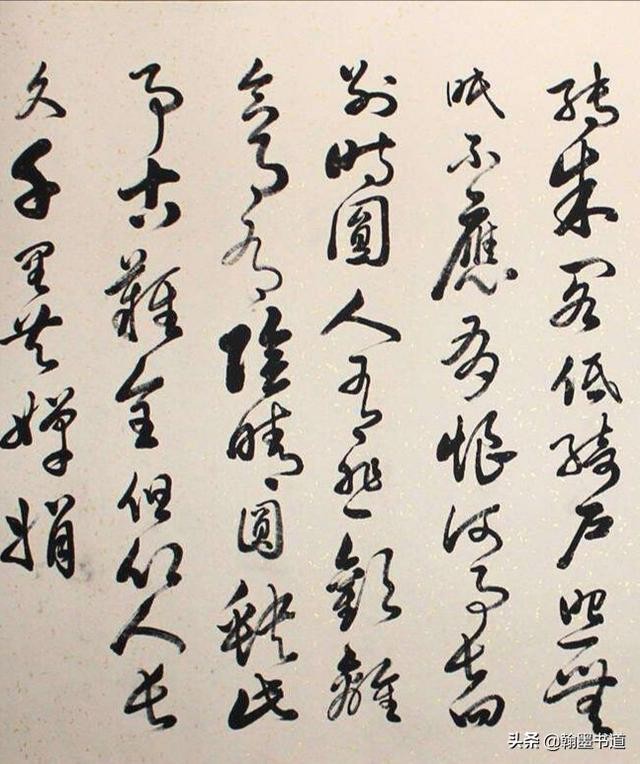 轉朱閣低綺户照無
眠不應有恨何事長向
別時圓人有悲歡離
合月有陰晴圓缺此
事古難全但願人長
久千里共嬋娟
头条 @翰墨书道